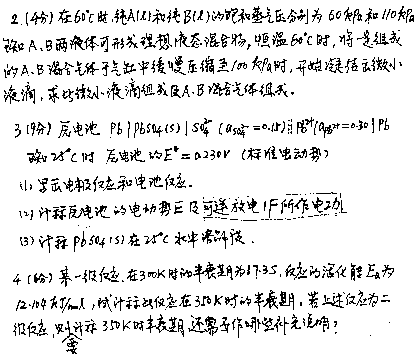 2.(4分)在60℃时,纯A(l)和纯B(l)的饱和蒸气压分别为60kPa和110kPa
A、B两液体可形成理想液态混合物,恒温60℃时,将一定组成
的A、B混合气体于气缸中缓慢压缩至100kPa时,开始凝结出微小
液滴,求此微小液滴组成及A、B混合气体组成。
3(9分) 原电池 Pb|PbSO4(s)|SO4 =0.15) =0.30)|Pb
25℃时 原电池的E =0.230V (标准电动势)
(1)写出电极反应和电池反应。
(2)计算原电池的电动势E及可逆放电1F所作电功
(3)计算PbSO4(s)在25℃水中
4(6分)某一级反应,在300K时的半衰期为 反应的活化能Ea为
12.104 试计算此反应在350K时的半衰期。若上述反应为二
级反应,则计算350K时半衰期,还需要作哪些补充说明?